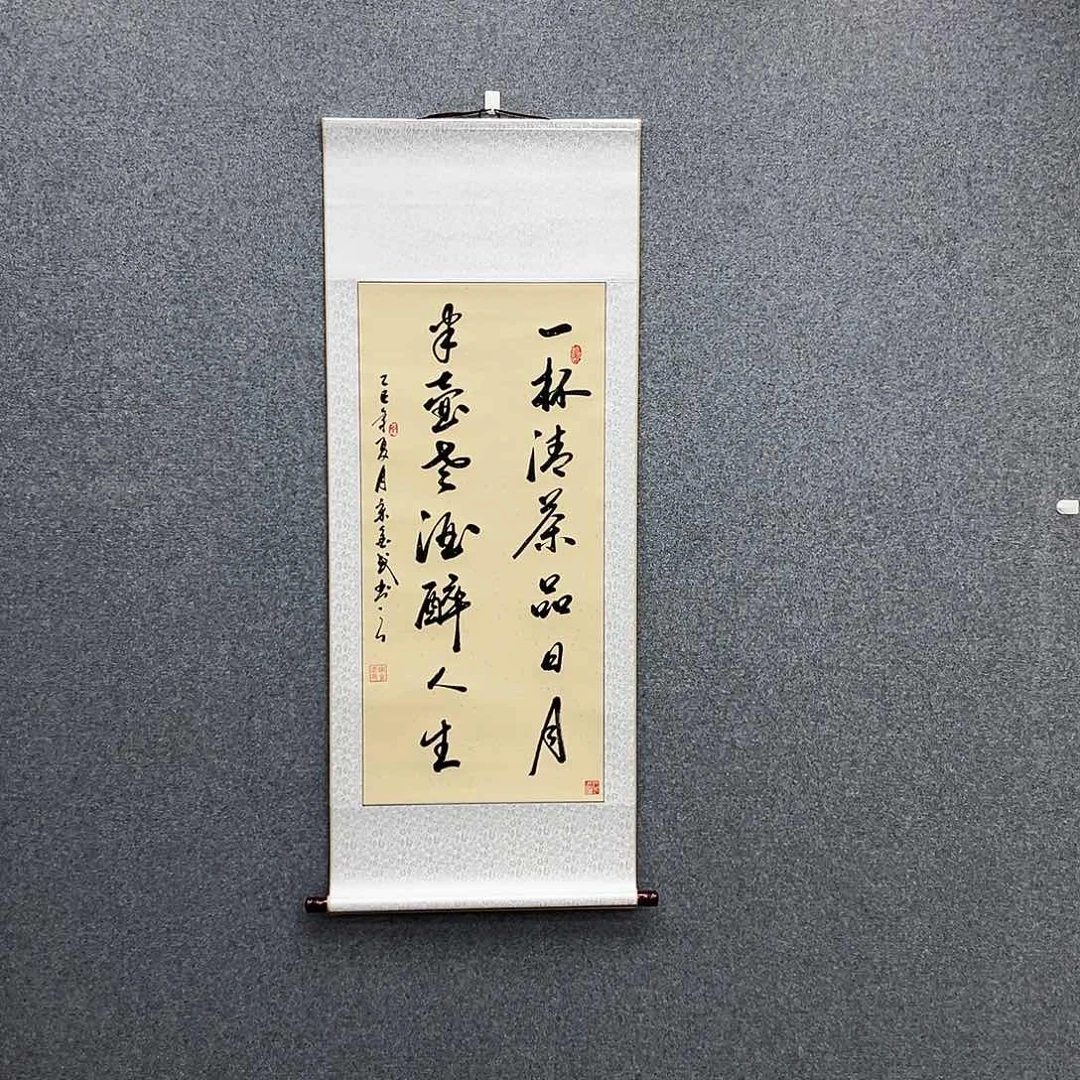 一杯清茶品日月
半壶老酒醉人生
乙巳年夏月宗金成书